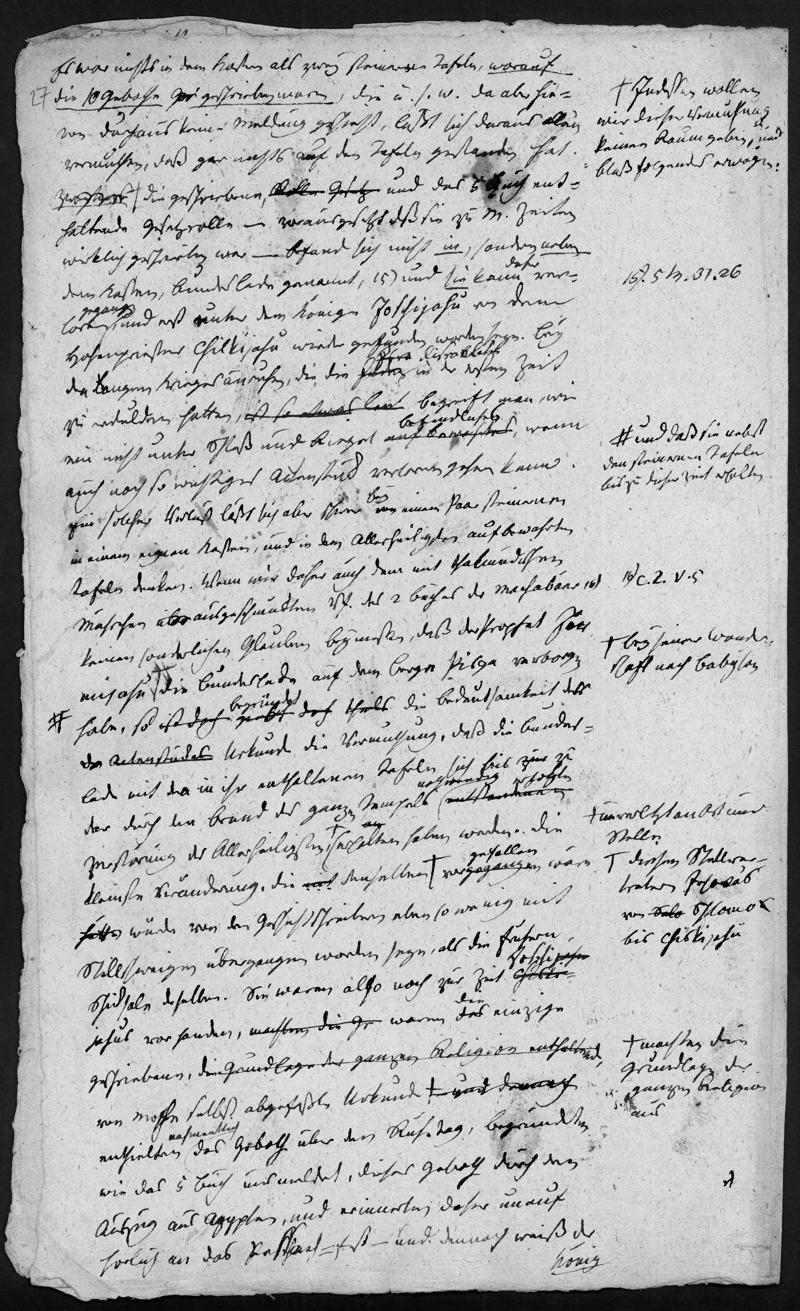 Es war nichts in dem Kasten als zwey steinerne Tafeln, worauf
27
die 10 Gebothe geschrieben waren, die u. s. w. da aber hie-
von durchaus keine Meldung geschieht, läßt sich daraus allein
vermuthen, daß gar nichts auf den Tafeln gestanden hat.
die geschriebene, und das 5 Buch ent-
haltende Gesetzrolle — vorausgesetzt daß sie zu M. Zeiten
wirklich geschrieben war — befand sich nicht in, sondern neben
dem Kasten, Bundeslade genannt, 15) und sie kann daher ver-
loren gegangen und erst unter dem Könige Joschijahu von dem
Hohenpriester Chilkijahu wieder gefunden worden seyn. Bey
den langen Kriegesunruhen, die die in der ersten Zeit
zu erdulden hatten, begreift man, wie
ein nicht unter Schloß und Riegel befindliches, wenn
auch noch so wichtiges Actenstück verloren gehen kann.
Ein solcher Verlust läßt sich aber schwer bey einem Paar steinernen
in einem eignen Kasten, und in dem Allerheiligsten aufbewahrten
Tafeln denken. Wenn wir daher auch dem mit talmudischen
Märchen ausgeschmückten Vf. des 2 Buches der Machabäer 16)
keinen sonderlichen Glauben beymessen, daß der Prophet Jere
mijahu die Bundeslade auf dem Berge Pisga verborgen
habe, so ist begründet die Bedeutsamkeit der
Urkunde die Vermuthung, daß die Bundes-
lade mit den in ihr enthaltenen Tafeln sich bis zu
der durch den Brand des ganzen Tempels nothwendig erfolgten
Zerstörung des Allerheiligsten erhalten haben werden. Die
kleinste Veränderung, die denselben vorgefallen wäre
würde von den Geschichtschreibern eben so wenig mit
Stillschweigen übergangen worden seyn, als die frühern
Schicksale derselben. Sie waren also noch zur Zeit Joschija-
jahus vorhanden, waren die einzige
geschriebene, die Grundlage der ganzen Religion enthaltende,
von Mosche selbst abgefaßte Urkunde und dennoch
enthielten namentlich das Geboth über den Ruhetag, begründeten
wie das 5 Buch uns meldet, dieses Geboth durch den
Auszug aus Aegypten, und erinnerten daher unauf
hörlich an das Peßach-Fest — und dennoch weiß der
König
† Indessen wollen
wir dieser Vermuthung
keinen Raum geben, und
bloß folgendes erwägen:
15) 5 M. 31. 26
# und daß sie nebst
den steinernen Tafeln
bis zu dieser Zeit erhalten
16) c. 2. v. 5
† bey seiner Wander-
schaft nach Babylon
† unverletzt an Ort und
Stelle
† diesem Stellver-
treter Jehovas
von Schlomo
bis Chiskijahu
† machten die
Grundlage der
ganzen Religion
aus